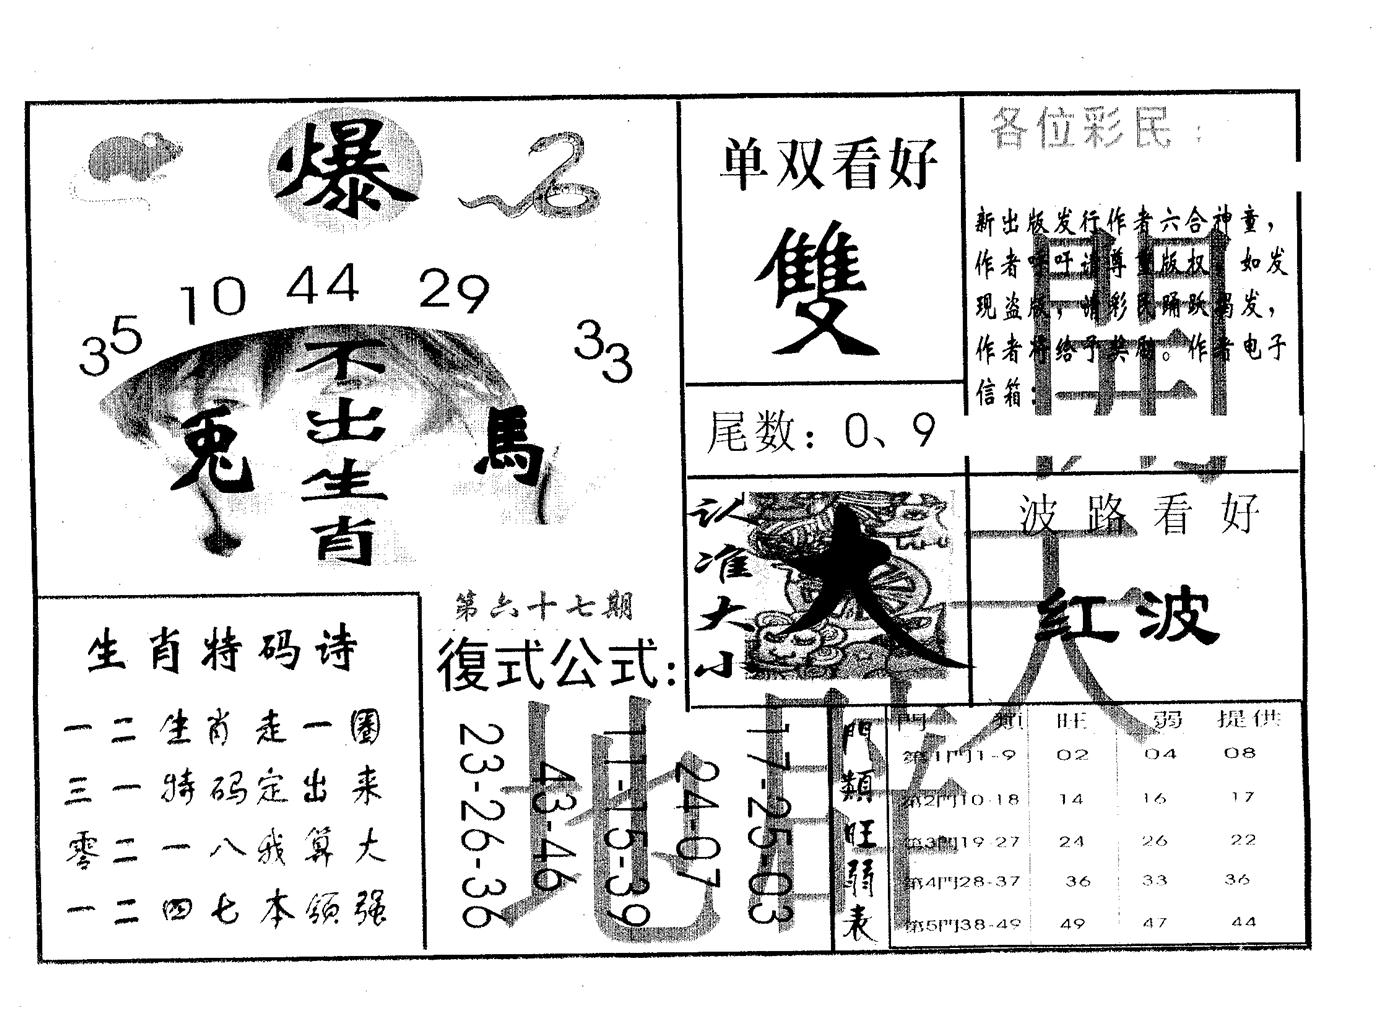 爆
35 10 44 29 33
不出生肖
兔 馬
单双看好
雙
尾数：0、9
各位彩民：
新出版发行作者六合神童，
作者呼吁请尊重版权，如发
现盗版，请彩民踊跃揭发，
作者将给予奖励。作者电子
信箱：
認准大小
大
波路看好
红波
開
天
地
生肖特码诗
一二生肖走一圈
三一特码定出来
零二一八我算大
一二四七本领强
第六十七期
復式公式：
23-26-36
43-46
11-15-39
24-07
17-25-03
門類旺弱表
門 類 旺 弱 提供
第1門1-9 02 04 08
第2門10-18 14 16 17
第3門19-27 24 26 22
第4門28-37 36 33 36
第5門38-49 49 47 44